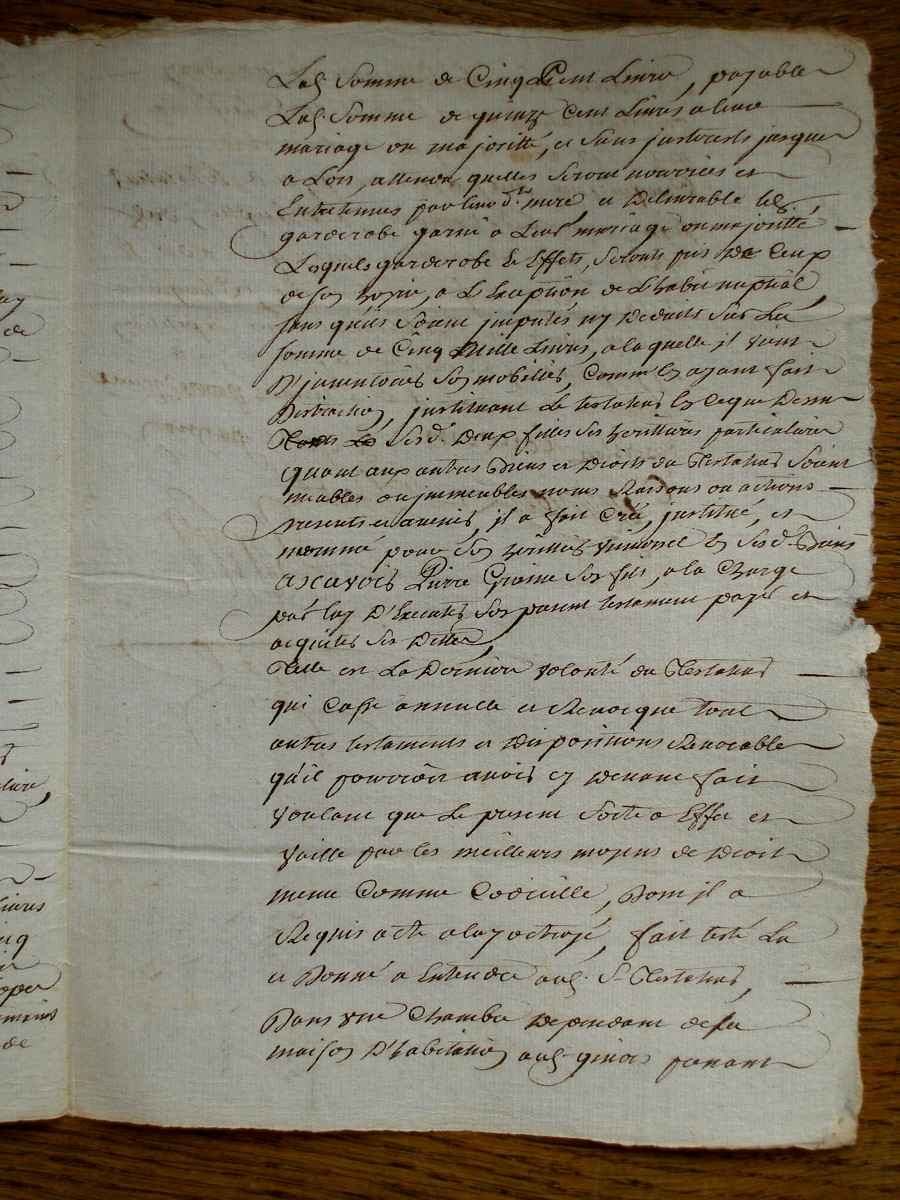 Lad. Somme de Cinq Cent Livres, payable
Lad. Somme de quinze Cent Livres a leur
mariage ou majoritté, et Sans jnterests jusques
a Lors, attendu quelles Seront nourries et
Entretenues par leur d. mere et Delivrable led.
garderobe garnie a Leur mariage ou majoritté
Lesquels garderobe & Effets, Seronts pris De Ceux
de son hoirie, a L'Exception de L'habit nuptial,
sans qu'ils Soient jmputés ny Deduits Sur La
somme de Cinq Mille Livres, a laquelle il vient
D'jnventorier Ses mobilliers, Comme En ayant fait
Distraction, jnstituant Le testateur En Ce que Dessus
Ses d. Deux filles Ses heritieres particulieres
Quant aux autres Biens et Droits du Testateur Soient
meubles ou jmmeubles noms Raisons ou actions
presents et avenirs, il a fait Creé, jnstitué, et
nommé pour Son heritier universel En Ses d. Biens
ascavoir Pierre Son fils, a la Charge
par luy D'Executer Son present testament payer et
acquiter Ses Dettes,
Telle est La Derniere volonté du Testateur
qui Casse annulle et Revoque tout
autres testaments et Dispositions Revocable
qu'il pourroit avoir Cy Devant fait
voulant que Le present Sorte a Effet et
vaille par les meilleurs moyens de Droit
meme Comme Codicille, Dont il a
Requis acte a luy octroyé, fait leu
et Donné a Entendre aud. Sr. Testateur,
Dans une Chambre Dependant de sa
maison D'habitation aud.